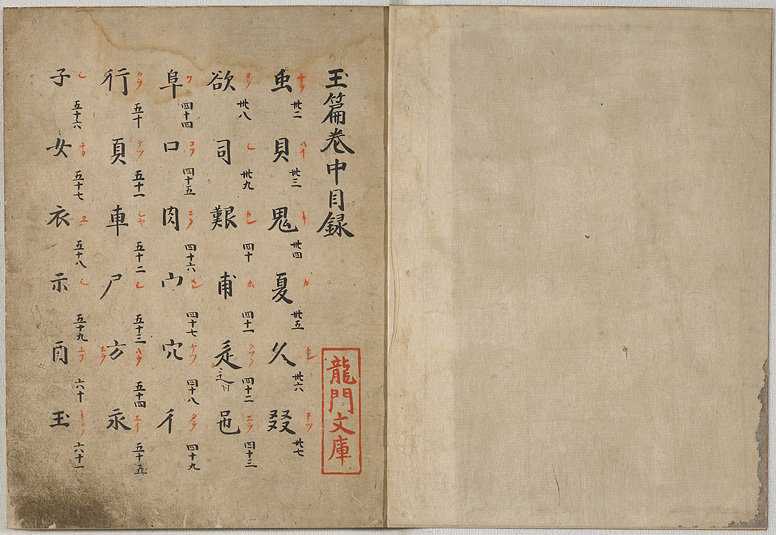 玉篇巻中目録
虫 丗二 貝 丗三 鬼 丗四 夏 丗五 久 丗六 叕 丗七
欲 丗八 司 丗九 艱 四十 甫 四十一 辵 四十二 邑 四十三
阜 四十四 口 四十五 肉 四十六 宀 四十七 穴 四十八 彳 四十九
行 五十 頁 五十一 車 五十二 尸 五十三 方 五十四 永 五十五
子 五十六 女 五十七 衣 五十八 示 五十九 酉 六十 玉 六十一
龍門文庫